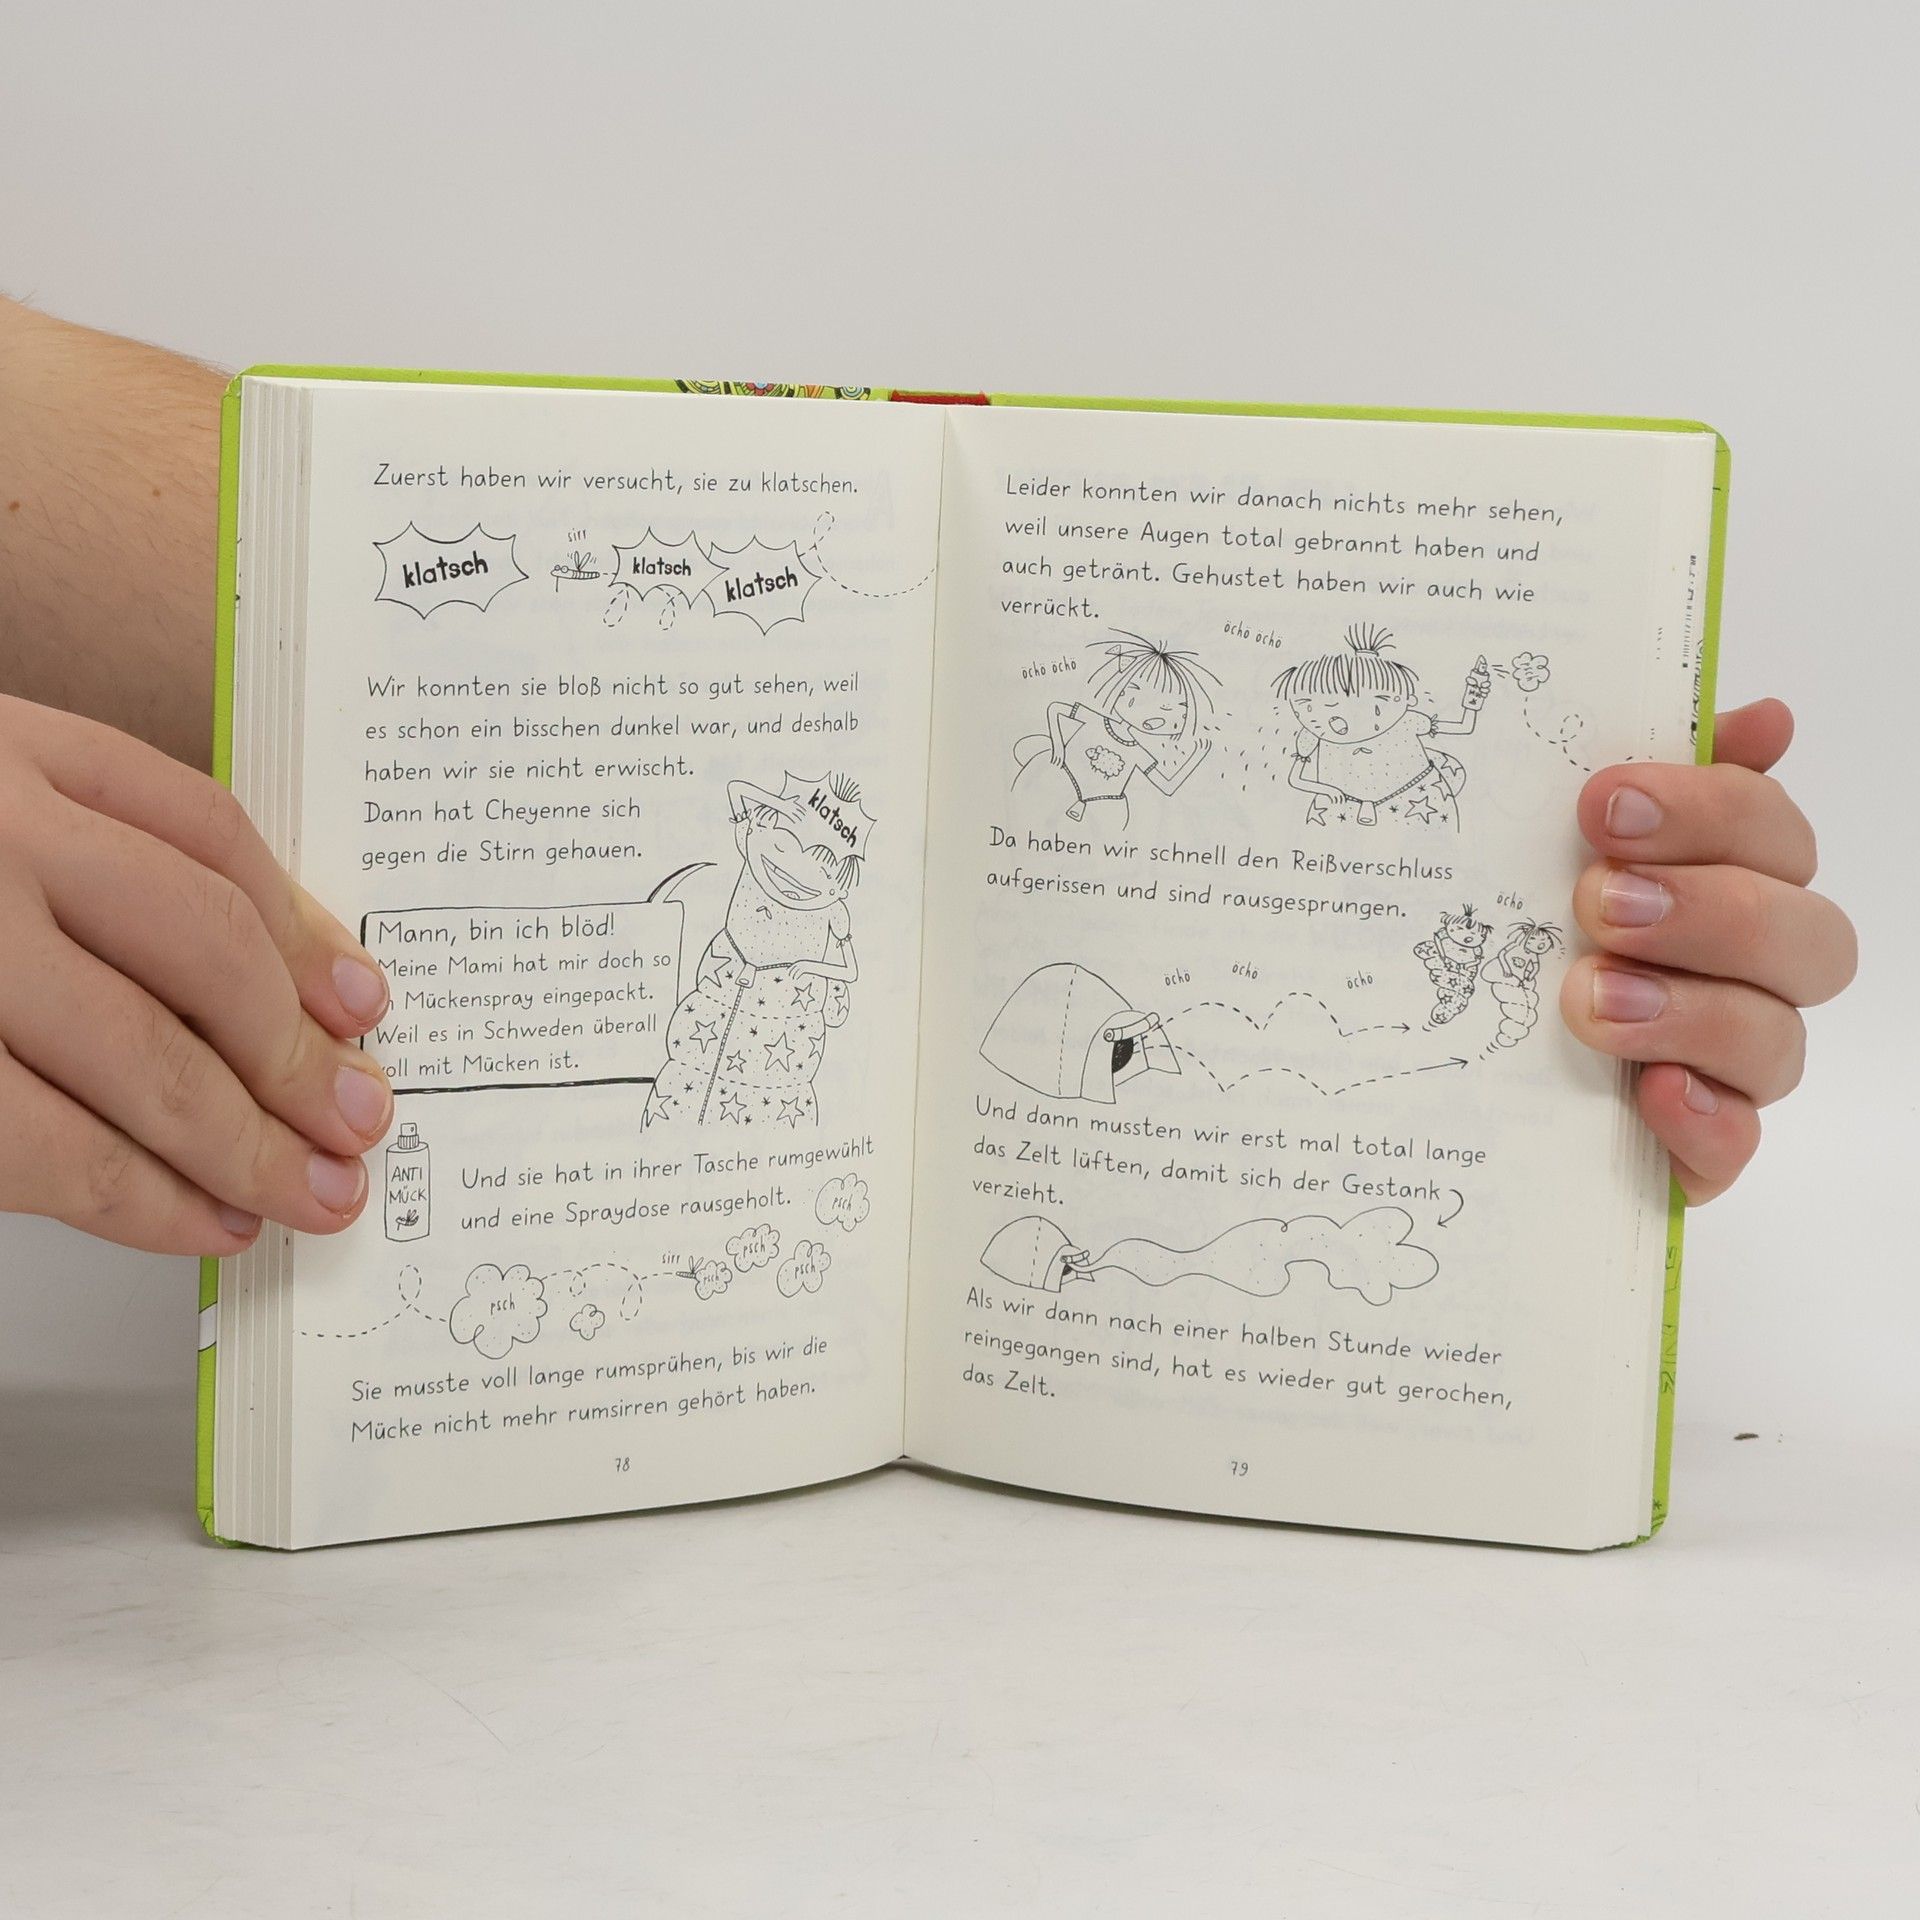 Zuerst haben wir versucht, sie zu klatschen.
klatsch
sirr
klatsch
klatsch
Wir konnten sie bloß nicht so gut sehen, weil
es schon ein bisschen dunkel war, und deshalb
haben wir sie nicht erwischt.
Dann hat Cheyenne sich
gegen die Stirn gehauen.
klatsch
Mann, bin ich blöd!
Meine Mami hat mir doch so
Mückenspray eingepackt.
Weil es in Schweden überall
voll mit Mücken ist.
ANTI
MÜCK
Und sie hat in ihrer Tasche rumgewühlt
und eine Spraydose rausgeholt.
psch
sirr
psch
psch
psch
psch
Sie musste voll lange rumsprühen, bis wir die
Mücke nicht mehr rumsirren gehört haben.
78
Leider konnten wir danach nichts mehr sehen,
weil unsere Augen total gebrannt haben und
auch getränt. Gehustet haben wir auch wie
verrückt.
öchö öchö
öchö öchö
Da haben wir schnell den Reißverschluss
aufgerissen und sind rausgesprungen.
öchö
öchö
öchö
öchö
Und dann mussten wir erst mal total lange
das Zelt lüften, damit sich der Gestank
verzieht.
Als wir dann nach einer halben Stunde wieder
reingegangen sind, hat es wieder gut gerochen,
das Zelt.
79